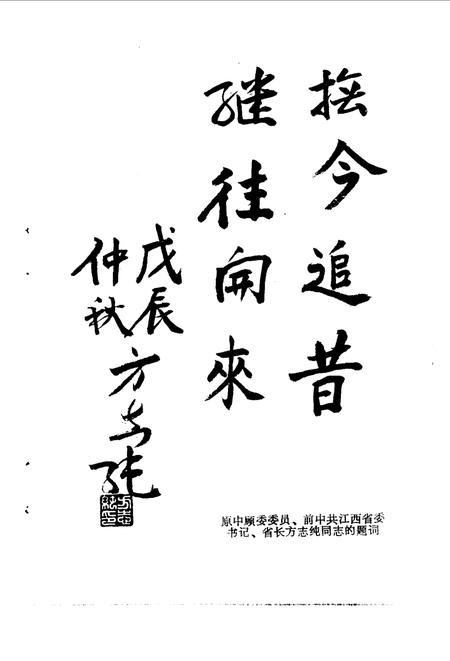 撫今追昔
继往開來
戊辰
仲秋
方志纯
原中顾委委员、前中共江西省委
书记、省长方志纯同志的题词